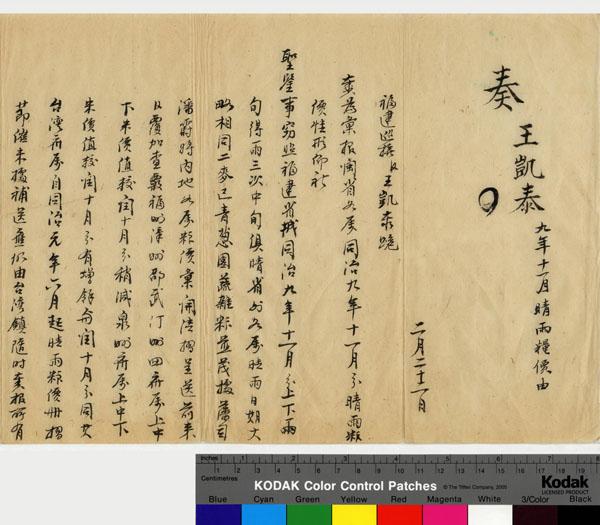 奏
王凱泰
九年十一月晴雨糧價由
二月二十一日
福建巡撫臣王凱泰跪
奏為彙報閩省各屬同治九年十一月分晴雨糧
價情形仰祈
聖鑒事竊照福建省城同治九年十一月分上下兩
旬得雨三次中旬俱晴省外各屬晴雨日期大
略相同二麥已青葱園蔬雜粮並茂據藩司
潘霨將內地各屬粮價彙開清摺呈送前來
臣覆加查覈福州漳州邵武汀州四府屬上中
下米價值較閏十月分稍減泉州府屬上中下
米價值較閏十月分有增餘與閏十月分同其
台灣府屬自同治元年六月起晴雨粮價冊摺
節催未據補送應仍由台灣鎮隨時奏報所有
Inches
Centimetres
KODAK Color Control Patches
© The Tiffen Company, 2005
Kodak
LICENSED PRODUCT
Blue Cyan Green Yellow Red Magenta White 3/Color Black